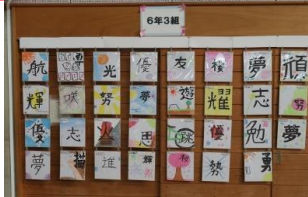 6年3組
航 光 優 友 桜 夢 頑
輝 咲 努 夢 遊 耀 志 努
優 志 思 跳 優 勉 夢
夢 猫 進 輝 勢 勇